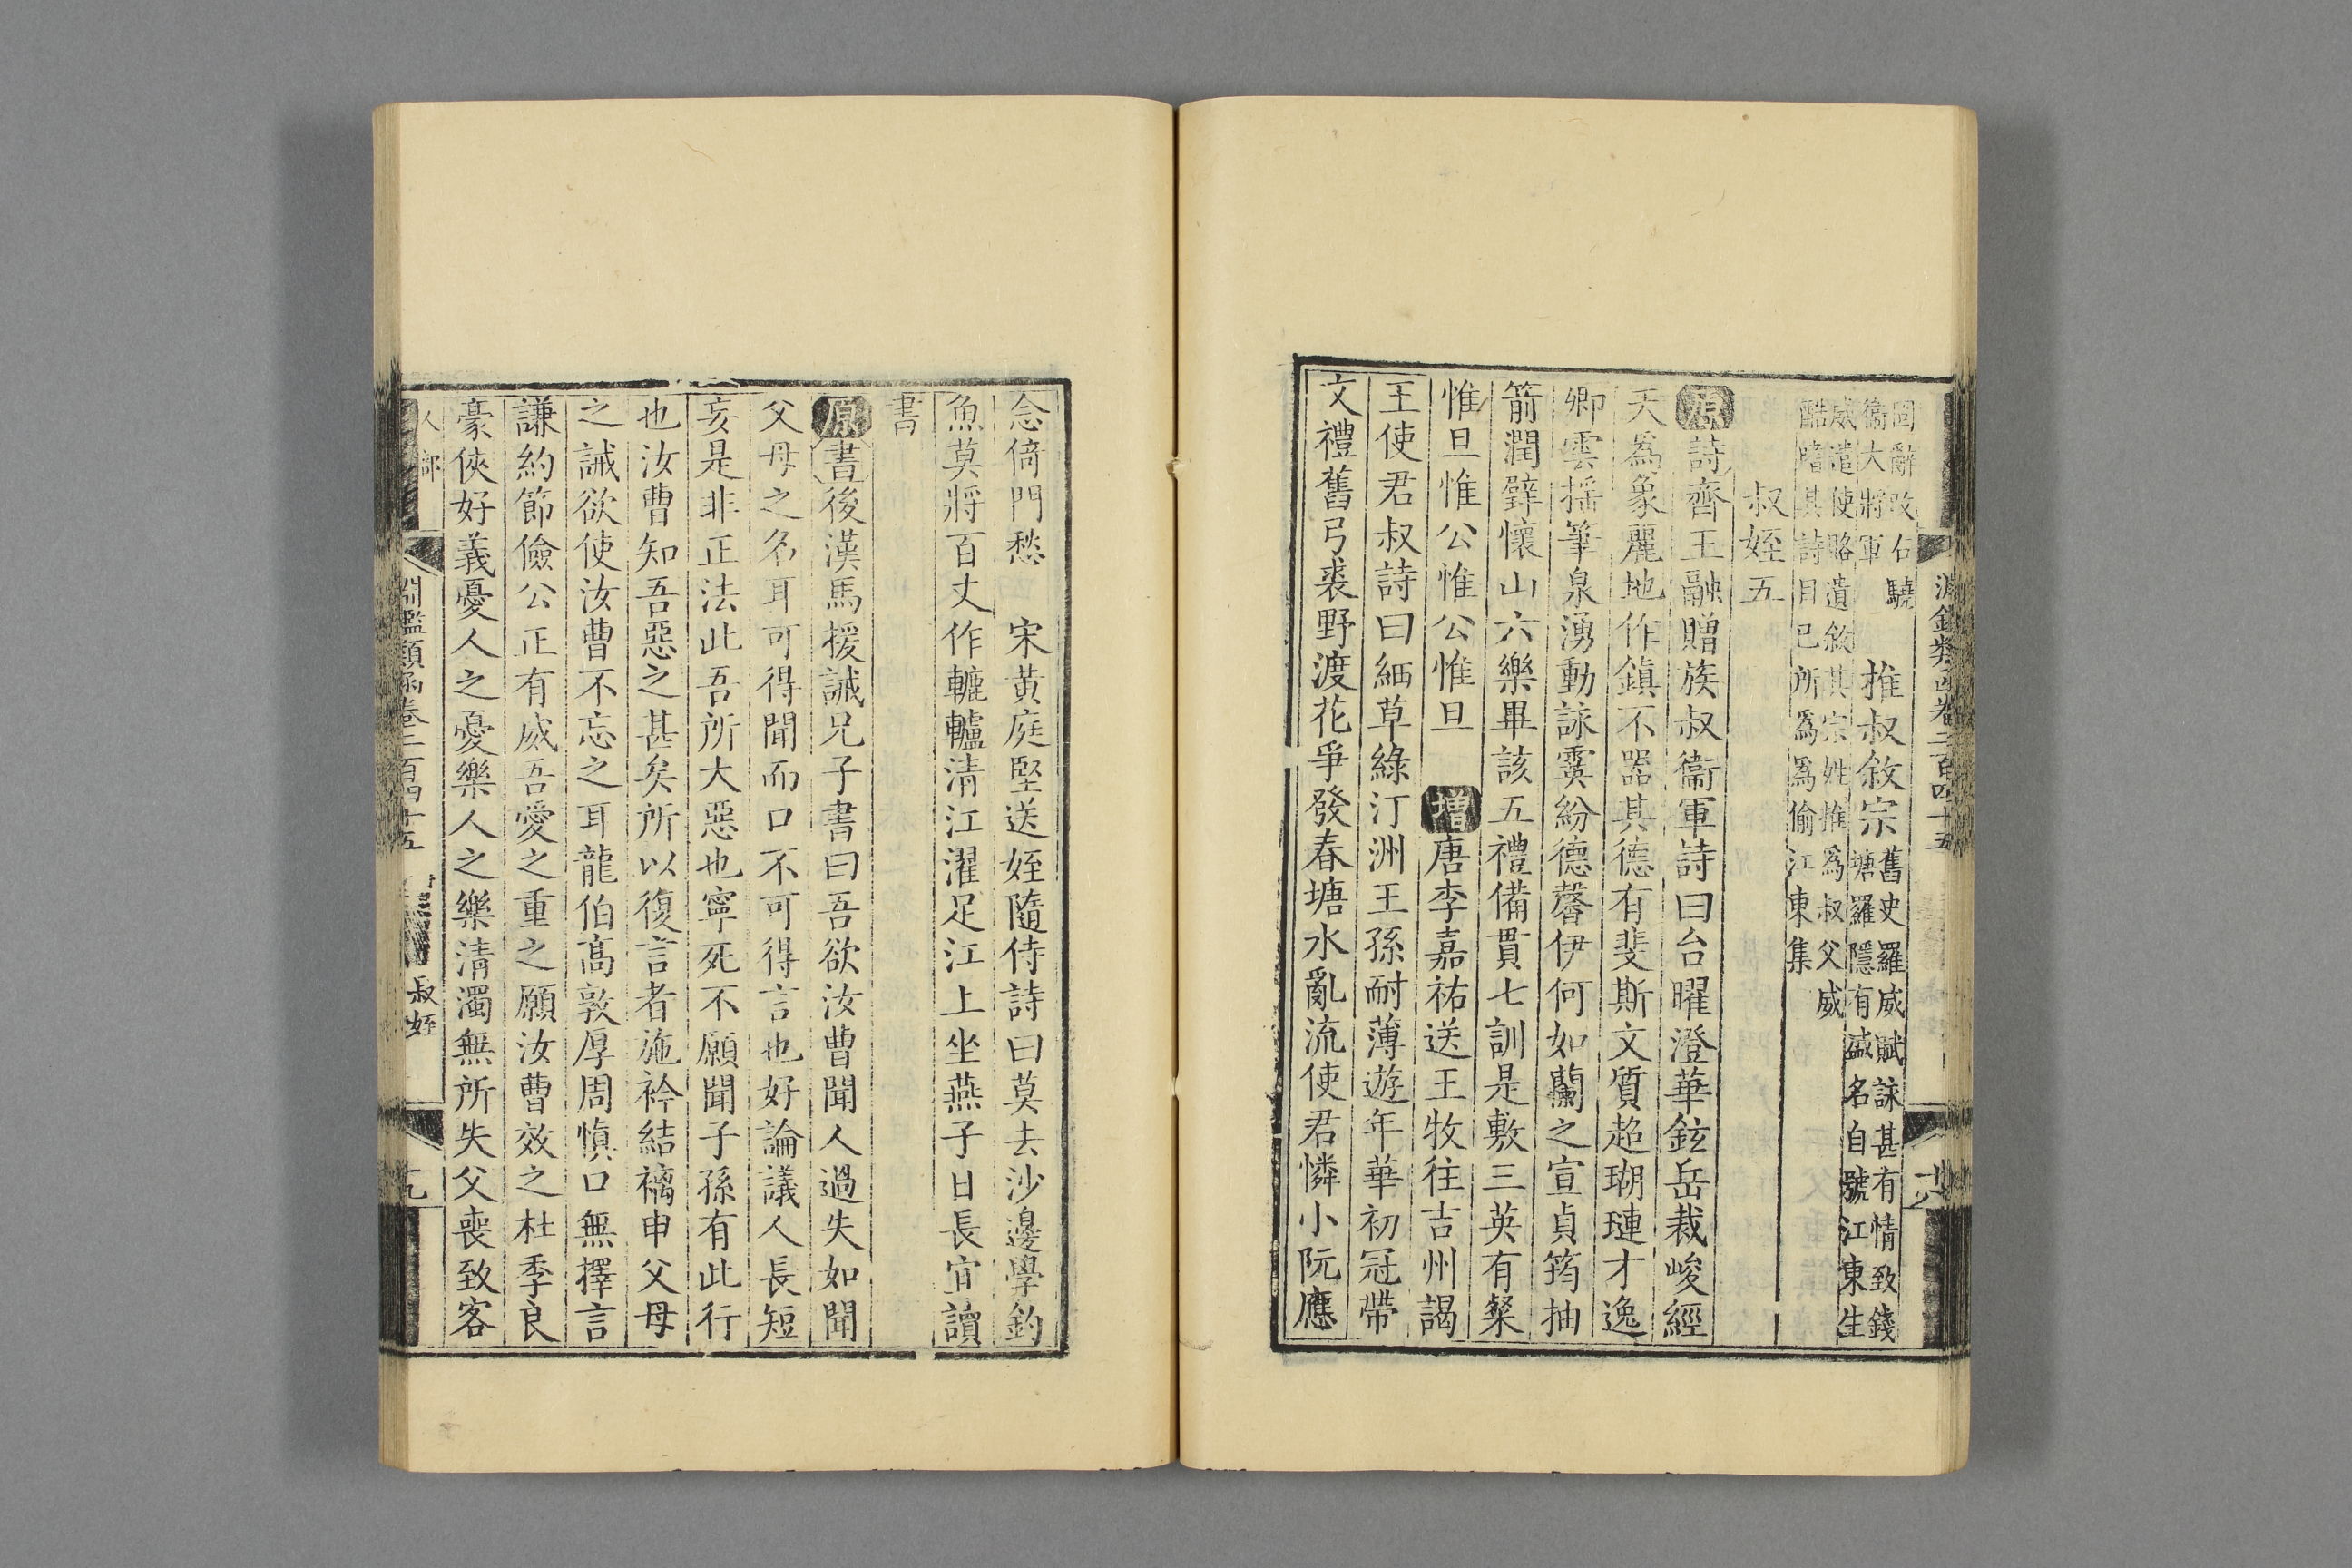 淵鑑類函卷二百四十五
固辭改右驍
衞大將軍
推叔敘宗
舊史羅威賦詠甚有情致錢
塘羅隱有盛名自號江東生
威遣使賂遺敘其宗姓推爲叔父威
酷嗜其詩目已所爲爲偷江東集
叔姪五
原詩齊王融贈族叔衞軍詩曰台曜澄華鉉岳裁峻經
天爲象麗地作鎮不器其德有斐斯文質超瑚璉才逸
卿雲揺筆泉湧動詠霙紛德馨伊何如蘭之宣貞筠抽
箭潤璧懷山六樂畢該五禮備貫七訓是敷三英有粲
惟旦惟公惟公惟旦 增唐李嘉祐送王牧往吉州謁
王使君叔詩曰緬草綠汀洲王孫耐薄遊年華初冠帶
文禮舊弓裘野渡花爭發春塘水亂流使君憐小阮應
念倚門愁 宋黃庭堅送姪隨侍詩曰莫去沙邊學釣
魚莫將百丈作轆轤清江濯足江上坐燕子日長宜讀
書
原書後漢馬援誡兄子書曰吾欲汝曹聞人過失如聞
父母之名耳可得聞而口不可得言也好論議人長短
妄是非正法此吾所大惡也寧死不願聞子孫有此行
也汝曹知吾惡之甚矣所以復言者施衿結褵申父母
之誡欲使汝曹不忘之耳龍伯高敦厚周愼口無擇言
謙約節儉公正有威吾愛之重之願汝曹效之杜季良
豪俠好義憂人之憂樂人之樂清濁無所失父喪致客
人部
淵鑑類函卷二百四十五
叔姪
十九